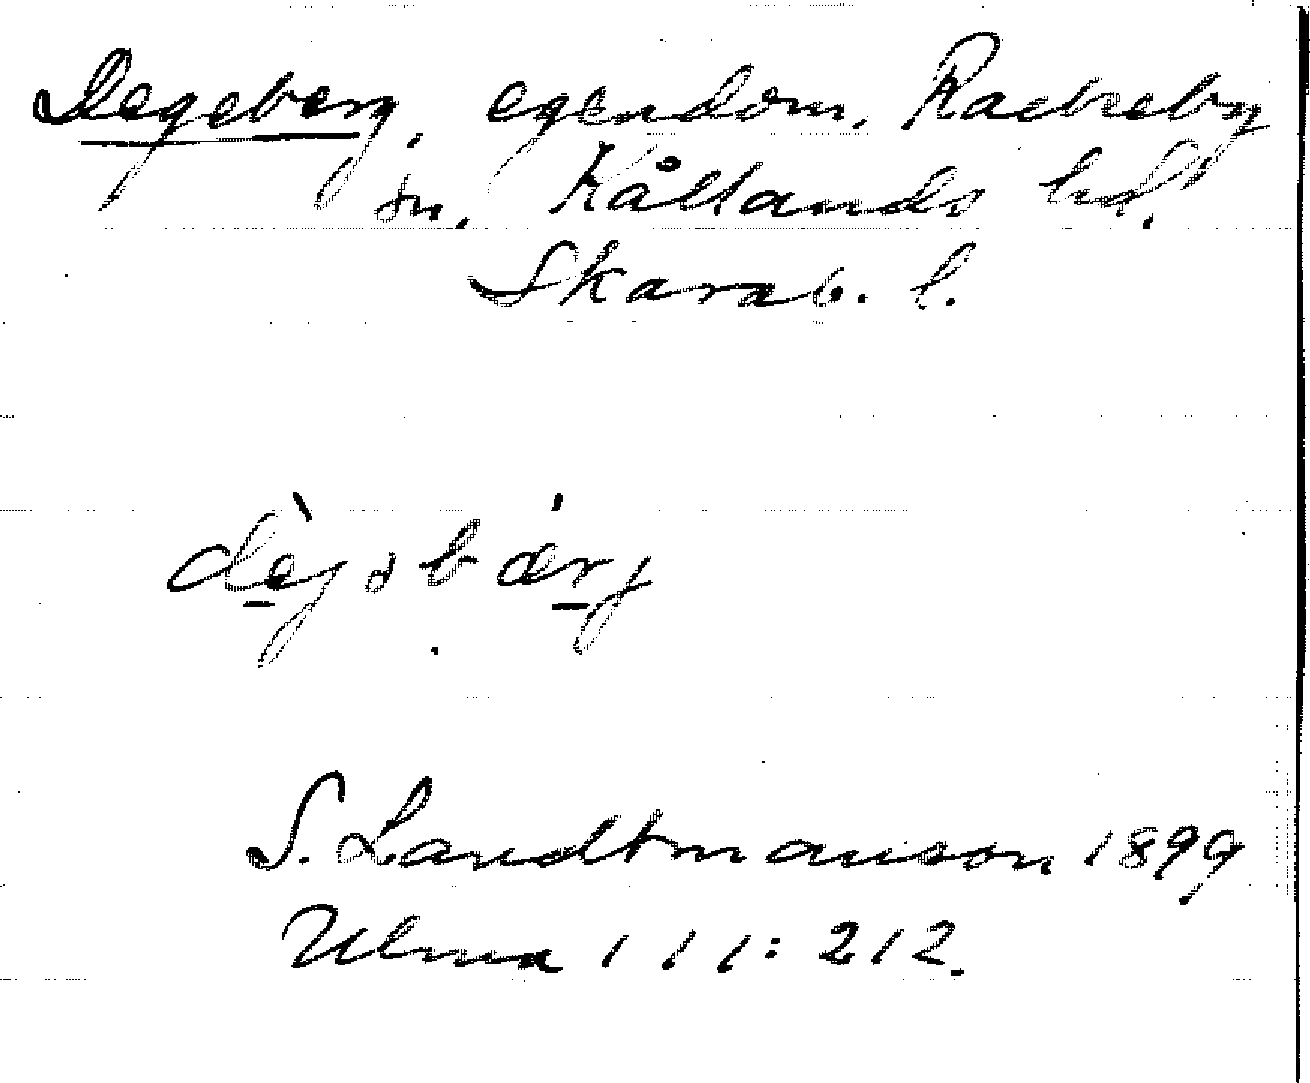 Degeberg, egendom, Rackeby
sn, Kållands hd.
Skarab. l.
dèjəbærj
S. Landtmanson 1899
Ulma 111:212.